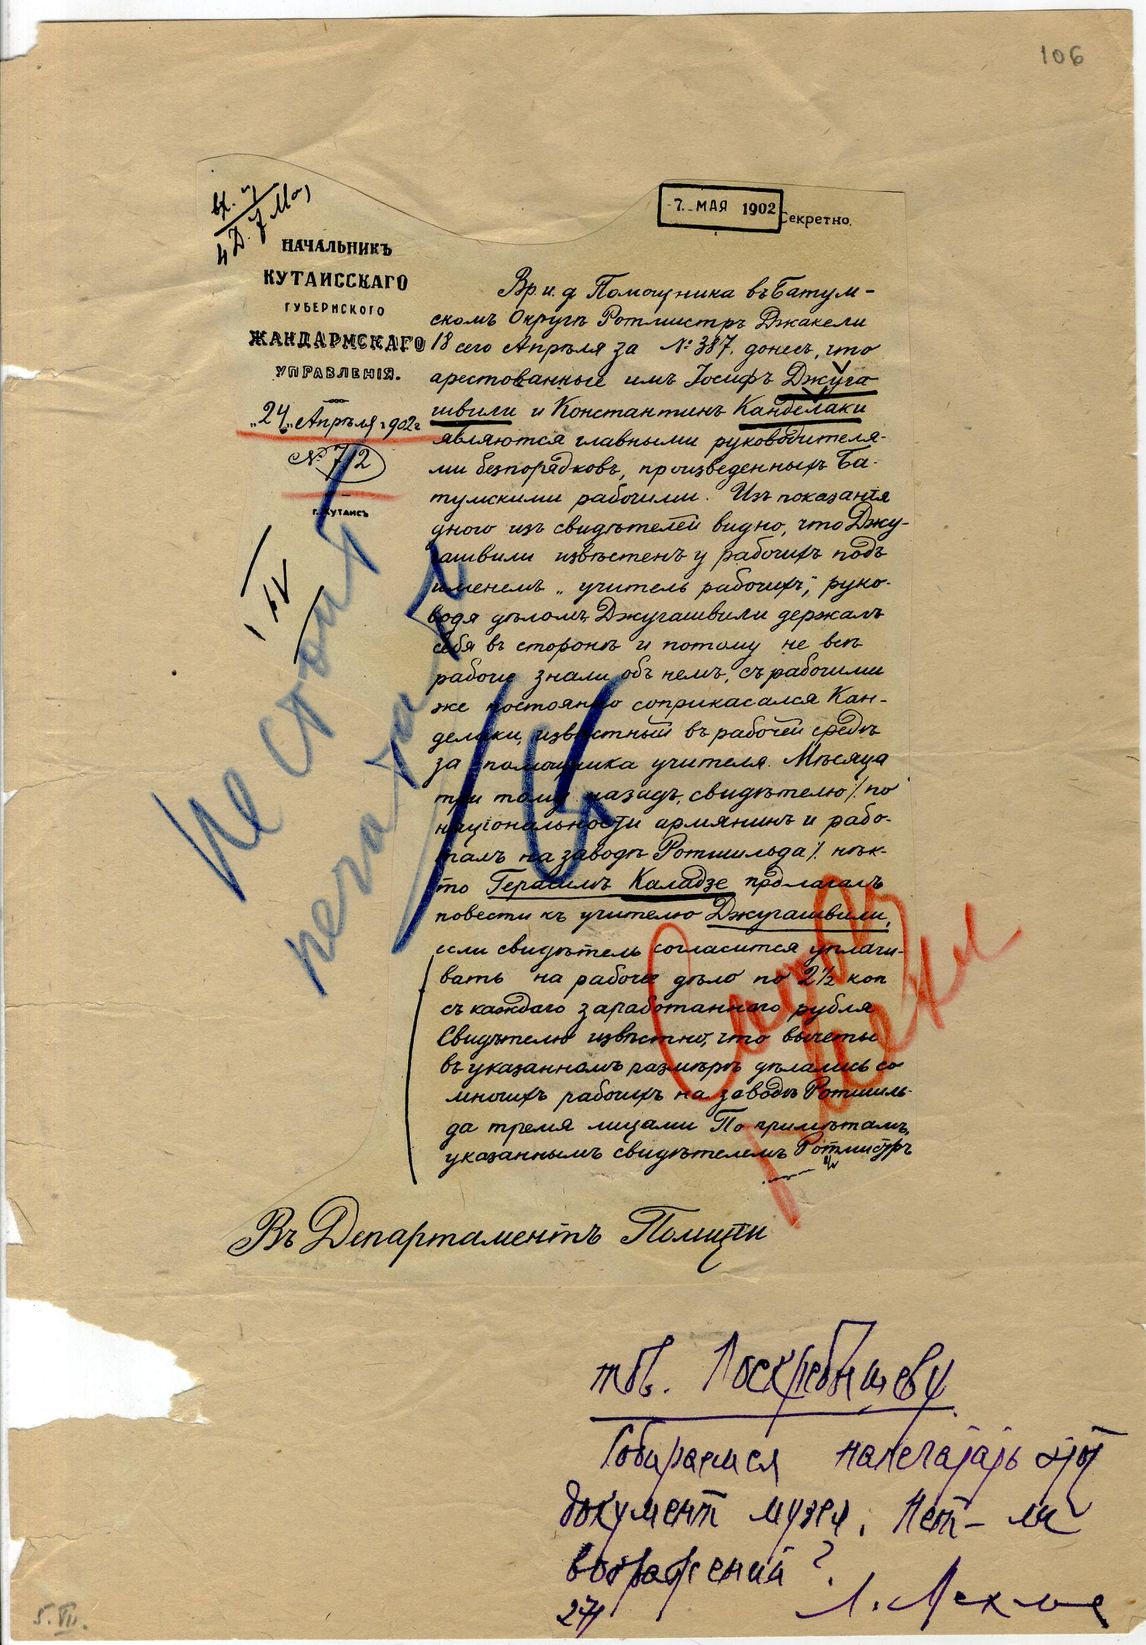 106
7. МАЯ 1902
Секретно.
НАЧАЛЬНИКЪ
КУТАИССКАГО
ГУБЕРНСКОГО
ЖАНДАРМСКАГО
УПРАВЛЕНІЯ.
„24„ Апрѣля 1902 г.
№ 712
г. Кутаисъ
Вр. и. д Помощника въ Батум-
скомъ Округѣ Ротмистръ Джакели
18 сего Апрѣля за № 387. донесъ, что
арестованные имъ Іосифъ Джуга
швили и Константинъ Канделаки
являются главными руководителя-
ми безпорядковъ, произведенныхъ Ба-
тумскими рабочими. Изъ показанія
одного изъ свидѣтелей видно, что Джу-
гашвили извѣстенъ у рабочихъ подъ
именемъ „учитель рабочихъ", руко-
водя дѣломъ Джугашвили держалъ
себя въ сторонѣ и потому не всѣ
рабочіе знали объ немъ, съ рабочими
же постоянно соприкасался Кан-
делаки, извѣстный въ рабочей средѣ
за помощника учителя. Мѣсяца
три тому назадъ, свидѣтелю /. по
національности армянинъ и рабо-
талъ на заводѣ Ротшильда /. нѣк-
то Герасимъ Каладзе предлагалъ
повести къ учителю Джугашвили,
если свидѣтель согласится уплачи-
вать на рабочее дѣло по 2½ коп
съ каждаго заработаннаго рубля
Свидѣтелю извѣстно, что вычеты
въ указанномъ размѣрѣ дѣлались со
многихъ рабочихъ на заводѣ Ротшиль-
да тремя лицами По примѣтамъ,
указаннымъ свидѣтелемъ Ротмистръ
Въ Департаментъ Полиціи
Не стоит
печатать
тов. Поскребышеву
Собираемся напечатать этот
документ музея. Нет-ли
возражений?
5. VII.